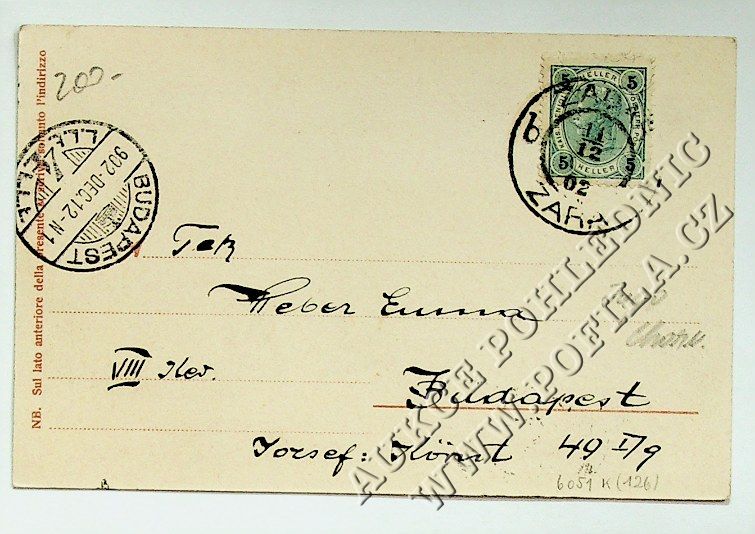 200-
5 HELLER 5
5 HELLER 5
b
ZARA
11/12
02
ZARA
BUDAPEST
902-DEC.12-N1
NB. Sul lato anteriore della presente si scrive soltanto l'indirizzo
Tek
Weber Emma
VIII Ker.
Budapest
Jozsef: Körut 49 I/9
6051 K (126)
AUKCE POHLEDNIC
WWW.POFILA.CZ